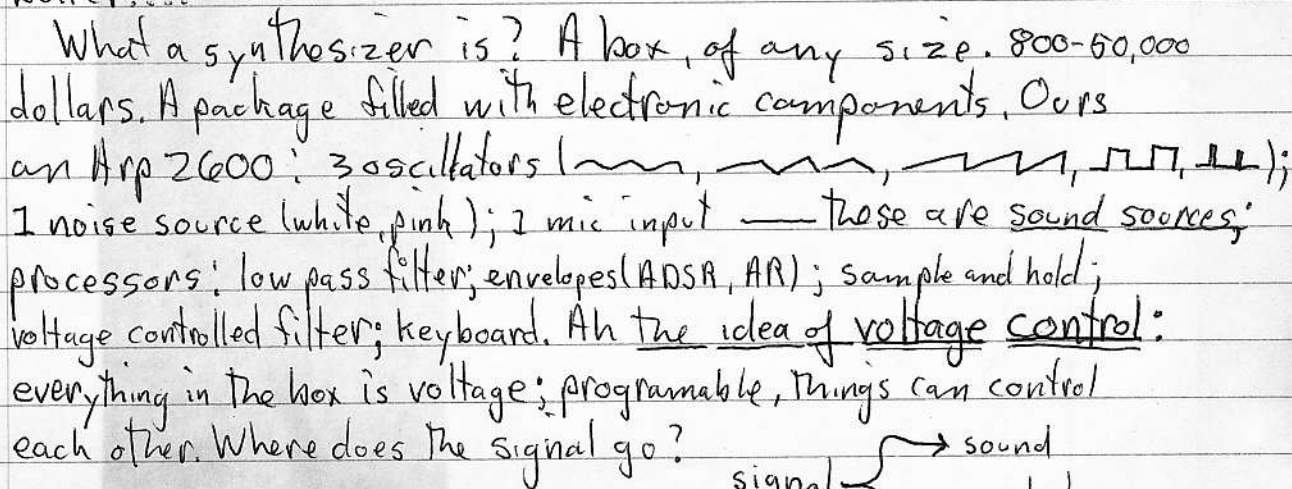 What a synthesizer is? A box, of any size. 800-50,000
dollars. A package filled with electronic components. Ours
an Arp 2600: 3 oscillators ( , , , , );
1 noise source (white, pink); 1 mic input — these are sound sources;
processors: low pass filter; envelopes (ADSR, AR); sample and hold;
voltage controlled filter; keyboard. Ah the idea of voltage control:
everything in the box is voltage; programable, things can control
each other. Where does the signal go?
sound
signal